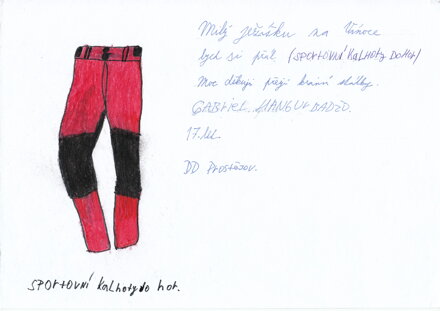 Milý ježíšku na Vánoce
bych si přál (SPORTOVNÍ KALHOTY DO HOR)
Moc děkuji přeji krásné svátky.
GABRIEL
17. let.
DD Prostějov.
SPORTOVNÍ KALHOTY do hor.